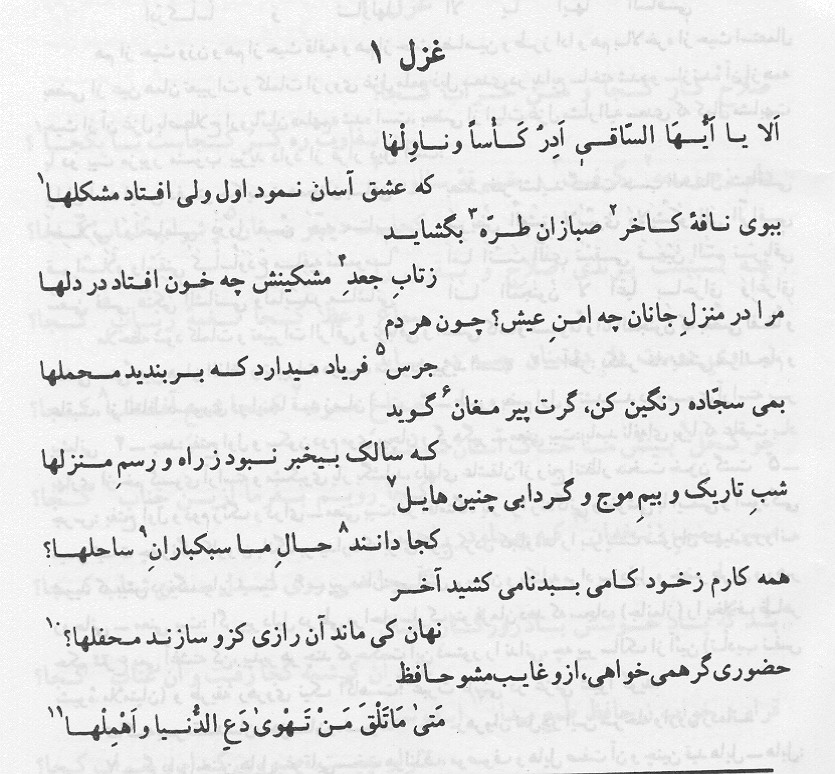 غزل ۱
اَلا یـا اَیُّـهَا السّاقـیِ اَدِرْ کَـأْساً و نـاوِلْها
که عشق آسان نمود اول ولی افتاد مشکلها۱
ببوی نافهٔ کـاخر۲ صبازان طُـرّه۳ بگشایـد
زتابِ جعدِ۴ مشکینش چه خون افتاد در دلها
مرا در منزلِ جانان چه امنِ عیش؟ چون هر دم
جرس۵ فریاد میدارد کـه بـربندید مـحملها
بمی سجّاده رنگین کن، گرت پیر مغان۶ گوید
کـه سالک بیخبر نـبود ز راه و رسمِ مـنزلها
شبِ تاریک و بیمِ موج و گردابی چنین هایل۷
کجا دانـند۸ حـالِ مـا سبکباران۹ ساحلهـا؟
همه کارم زخود کامی بـبدنامی کشید آخـر
نهان کی ماند آن رازی کزو سازند مـحفلها؟۱۰
حضوری گر همی خواهی، ازو غایب مشو حافظ
مَتیٰ مَاتَلْقَ مَـنْ تَـهْویٰ دَعِ الدُّنـیا و اَهْمِلْهـا۱۱